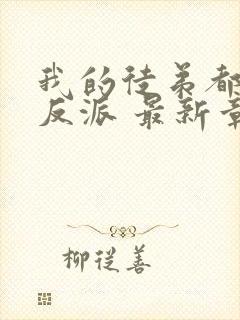 我的徒弟都
反派 最新章
柳從善